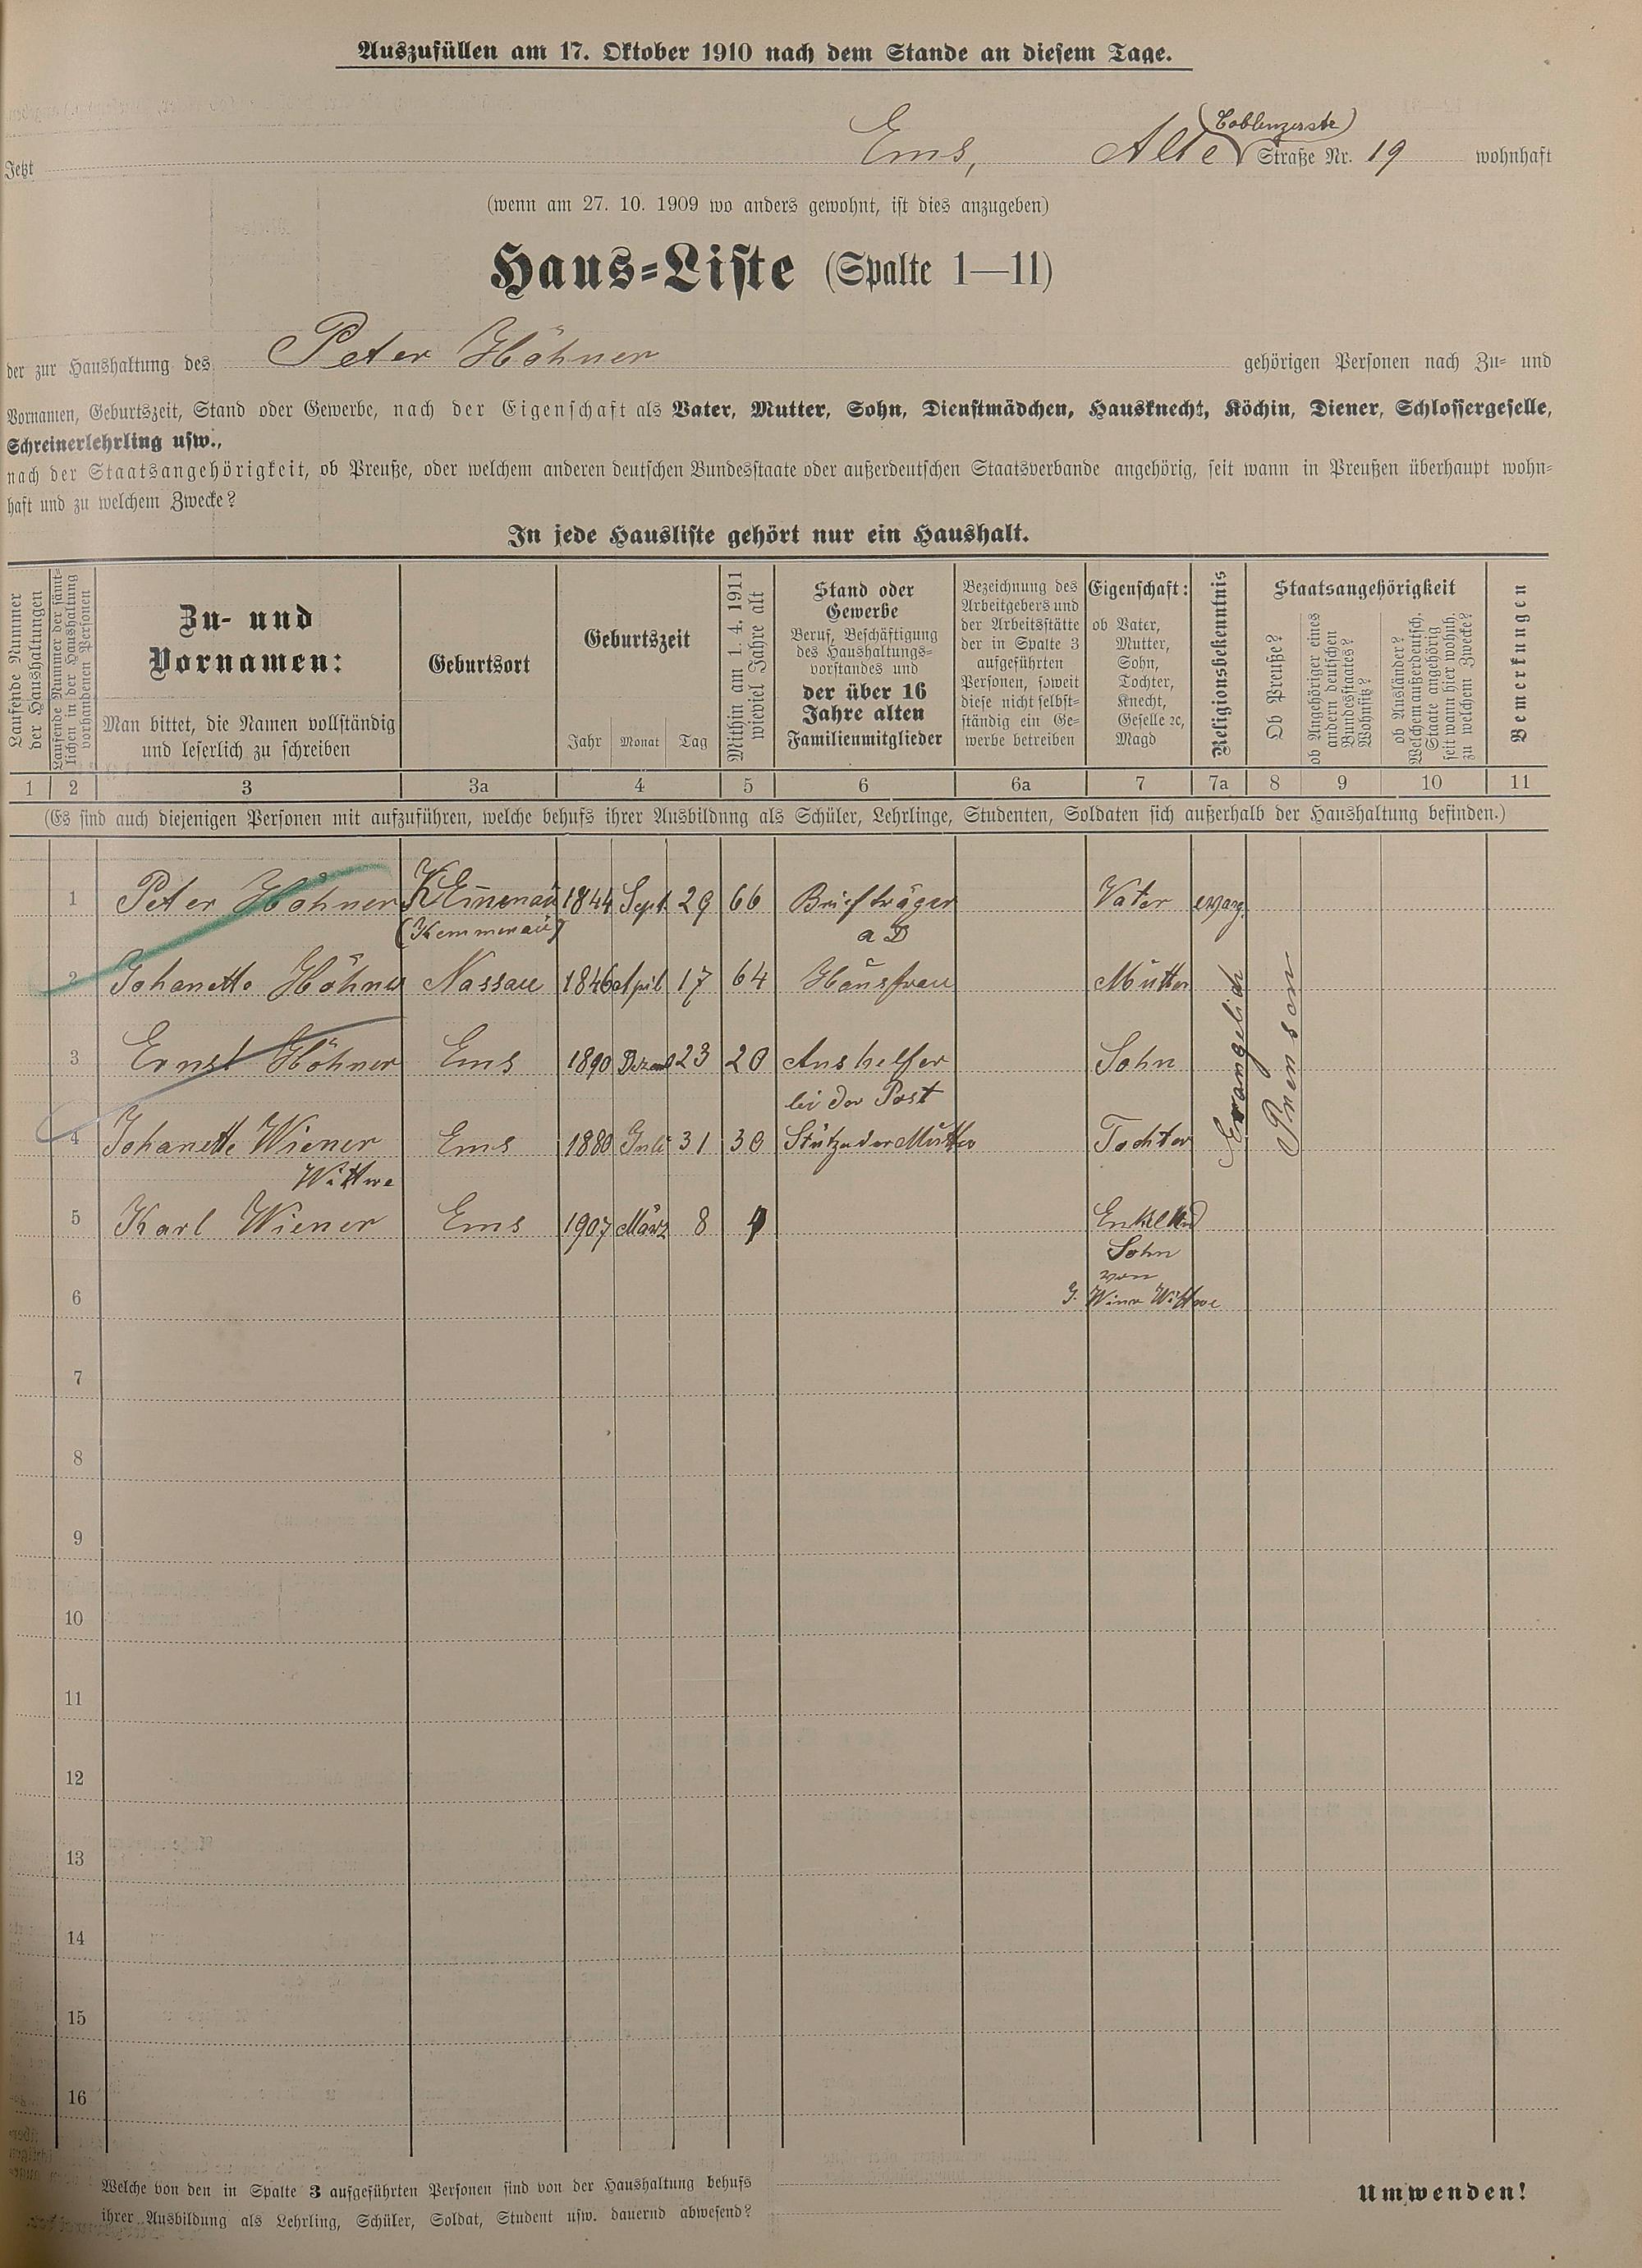 Auszufüllen am 17. Oktober 1910 nach dem Stande an diesem Tage.
(Coblenzerstr)
Jetzt Ems, Alte Straße Nr. 19 wohnhaft
(wenn am 27. 10. 1909 wo anders gewohnt, ist dies anzugeben)
Haus-Liste (Spalte 1—11)
der zur Haushaltung des Peter Höhner gehörigen Personen nach Zu- und
Vornamen, Geburtszeit, Stand oder Gewerbe, nach der Eigenschaft als Vater, Mutter, Sohn, Dienstmädchen, Hausknecht, Köchin, Diener, Schlossergeselle,
Schreinerlehrling usw.,
nach der Staatsangehörigkeit, ob Preuße, oder welchem anderen deutschen Bundesstaate oder außerdeutschen Staatsverbande angehörig, seit wann in Preußen überhaupt wohn-
haft und zu welchem Zwecke?
In jede Hausliste gehört nur ein Haushalt.
Laufende Nummer
der Haushaltungen
Laufende Nummer der sämt-
lichen in der Haushaltung
vorhandenen Personen
Zu- und
Vornamen:
Man bittet, die Namen vollständig
und leserlich zu schreiben
Geburtsort
Geburtszeit
Jahr Monat Tag
Mithin am 1. 4. 1911
wieviel Jahre alt
Stand oder
Gewerbe
Beruf, Beschäftigung
des Haushaltungs-
vorstandes und
der über 16
Jahre alten
Familienmitglieder
Bezeichnung des
Arbeitgebers und
der Arbeitsstätte
der in Spalte 3
aufgeführten
Personen, soweit
diese nicht selbst-
ständig ein Ge-
werbe betreiben
Eigenschaft:
ob Vater,
Mutter,
Sohn,
Tochter,
Knecht,
Geselle ꝛc,
Magd
Religionsbekenntnis
Staatsangehörigkeit
Ob Preuße?
ob Angehöriger eines
andern deutschen
Bundesstaates?
Wohnsitz?
ob Ausländer?
Welchem außerdeutsch.
Staate angehörig
seit wann hier wohnh.
zu welchem Zwecke?
Bemerkungen
1 2 3 3a 4 5 6 6a 7 7a 8 9 10 11
(Es sind auch diejenigen Personen mit aufzuführen, welche behufs ihrer Ausbildung als Schüler, Lehrlinge, Studenten, Soldaten sich außerhalb der Haushaltung befinden.)
1 Peter Höhner 1844 Sept. 29 66 Briefträger Vater evang.
(Kemmenau) a D
2 Johanette Höhner Nassau 1846 April 17 64 Hausfrau Mutter
Evangelich
Preusen
3 Ernst Höhner Ems 1890 23 20 Aushelfer Sohn
bei der Post
4 Johanette Wiener Ems 1880 Juli 31 30 Stütze der Mutter Tochter
Wittwe
5 Karl Wiener Ems 1907 März 8 4 Enkelkind
Sohn
von
6 J. Wittwe
7
8
9
10
11
12
13
14
15
16
Welche von den in Spalte 3 aufgeführten Personen sind von der Haushaltung behufs
ihrer Ausbildung als Lehrling, Schüler, Soldat, Student usw. dauernd abwesend?
Umwenden!